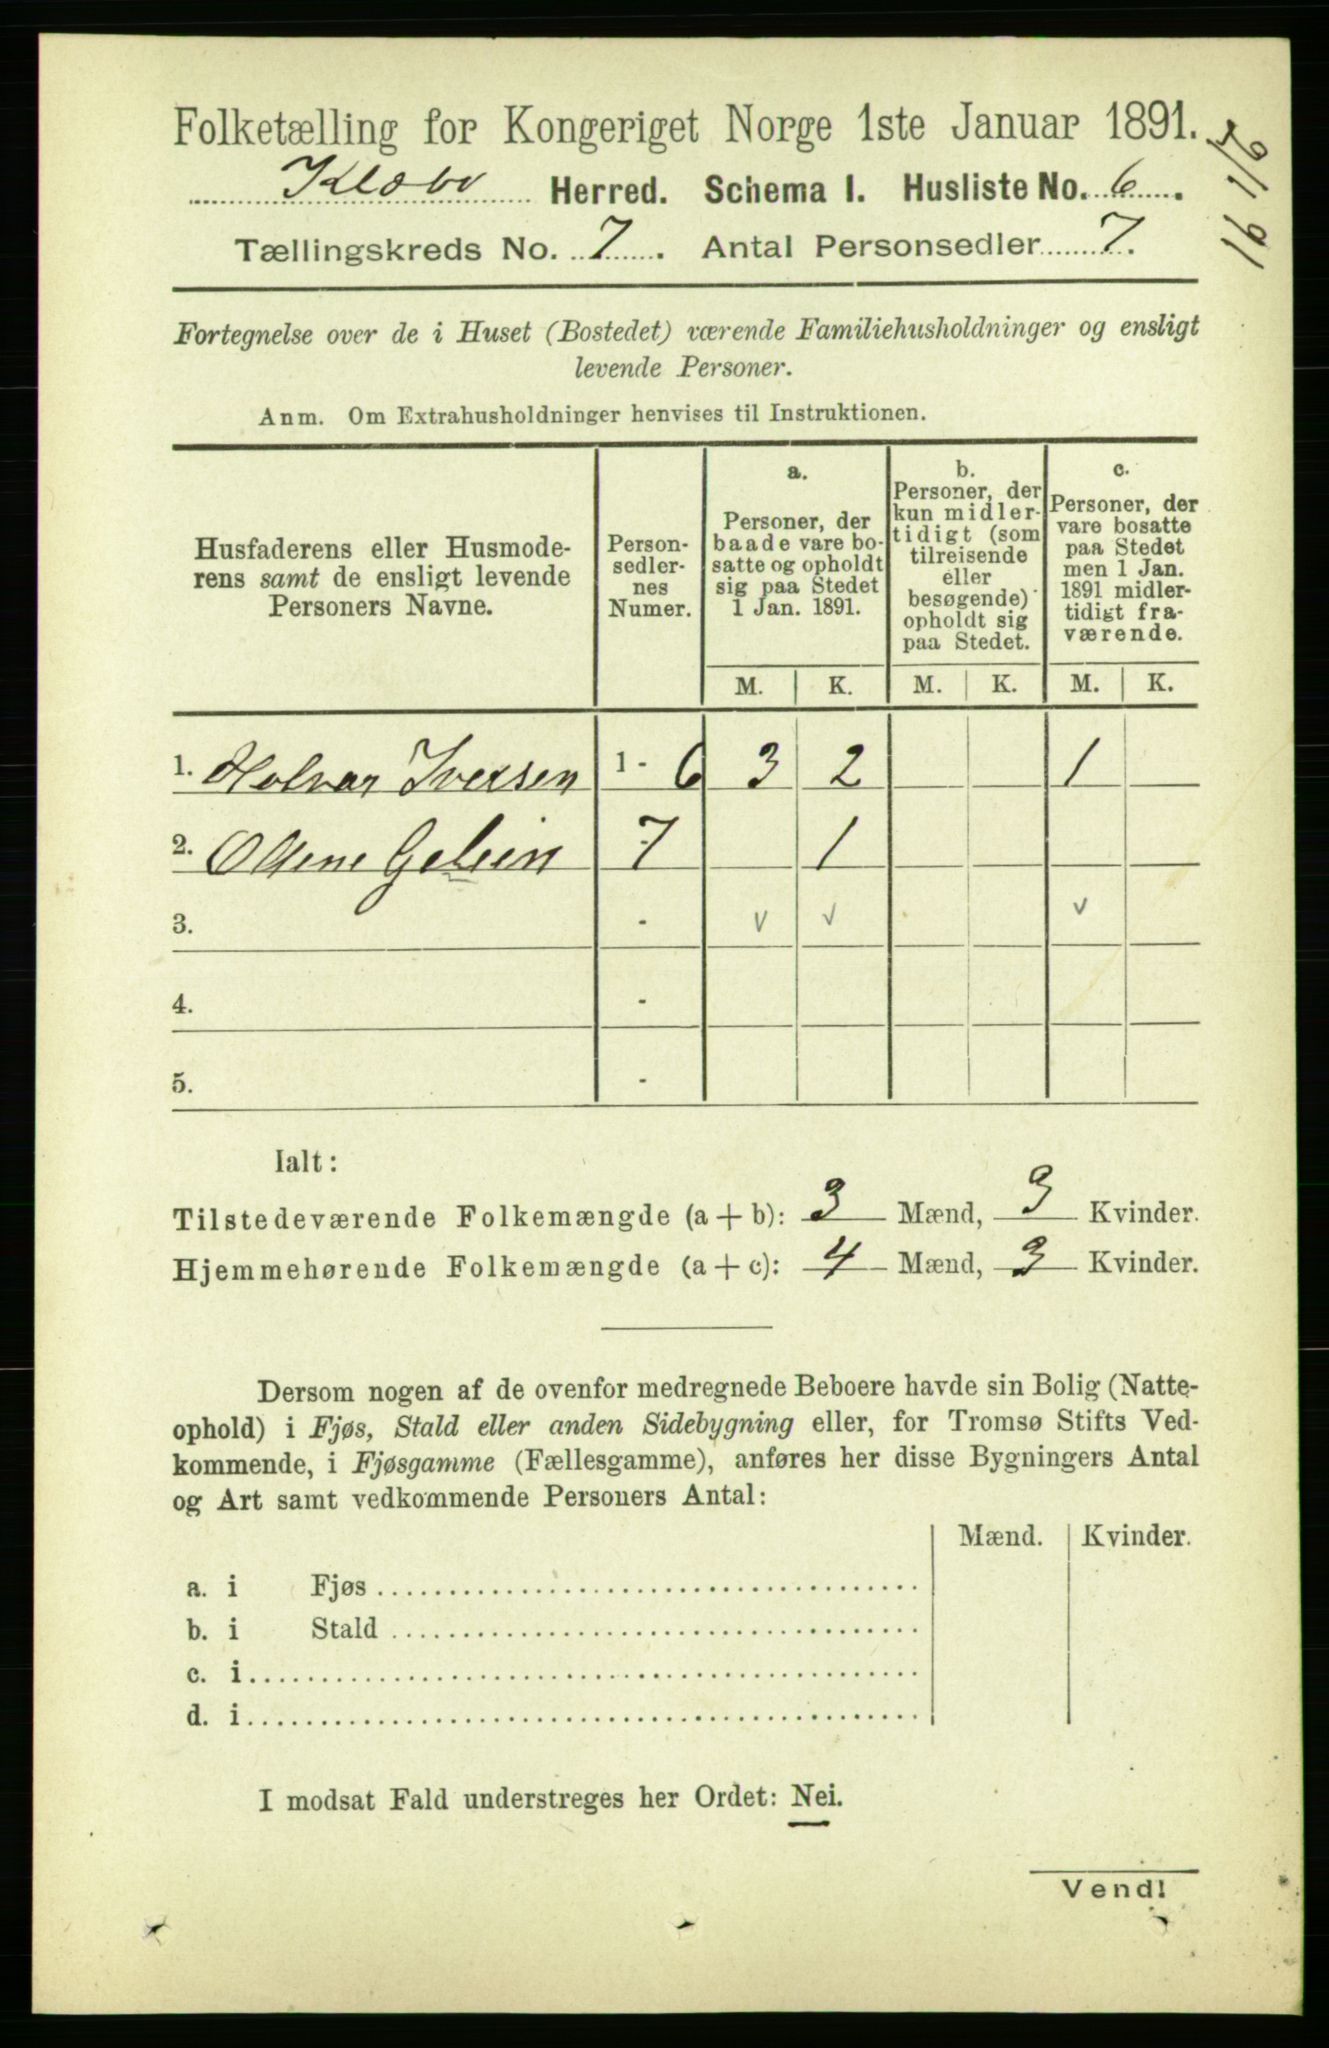 Folketælling for Kongeriget Norge 1ste Januar 1891.
Klæbo Herred. Schema I. Husliste No. 6.
Tællingskreds No. 7. Antal Personsedler 7.
2/1 91
Fortegnelse over de i Huset (Bostedet) værende Familiehusholdninger og ensligt
levende Personer.
Anm. Om Extrahusholdninger henvises til Instruktionen.
Husfaderens eller Husmode-
rens samt de ensligt levende
Personers Navne.
Person-
sedler-
nes
Numer.
a.
Personer, der
baade vare bo-
satte og opholdt
sig paa Stedet
1 Jan. 1891.
b.
Personer, der
kun midler-
tidigt (som
tilreisende
eller
besøgende)
opholdt sig
paa Stedet.
c.
Personer, der
vare bosatte
paa Stedet
men 1 Jan.
1891 midler-
tidigt fra-
værende.
M. K. M. K. M. K.
1. Holvar Iversen 1 - 6 3 2 1
2. Oline 7 1
3. - v √ v
4. -
5. -
Ialt:
Tilstedeværende Folkemængde (a + b): 3 Mænd, 3 Kvinder.
Hjemmehørende Folkemængde (a + c): 4 Mænd, 3 Kvinder.
Dersom nogen af de ovenfor medregnede Beboere havde sin Bolig (Natte-
ophold) i Fjøs, Stald eller anden Sidebygning eller, for Tromsø Stifts Ved-
kommende, i Fjøsgamme (Fællesgamme), anføres her disse Bygningers Antal
og Art samt vedkommende Personers Antal:
Mænd. Kvinder.
a. i Fjøs
b. i Stald
c. i
d. i
I modsat Fald understreges her Ordet: Nei.
Vend!